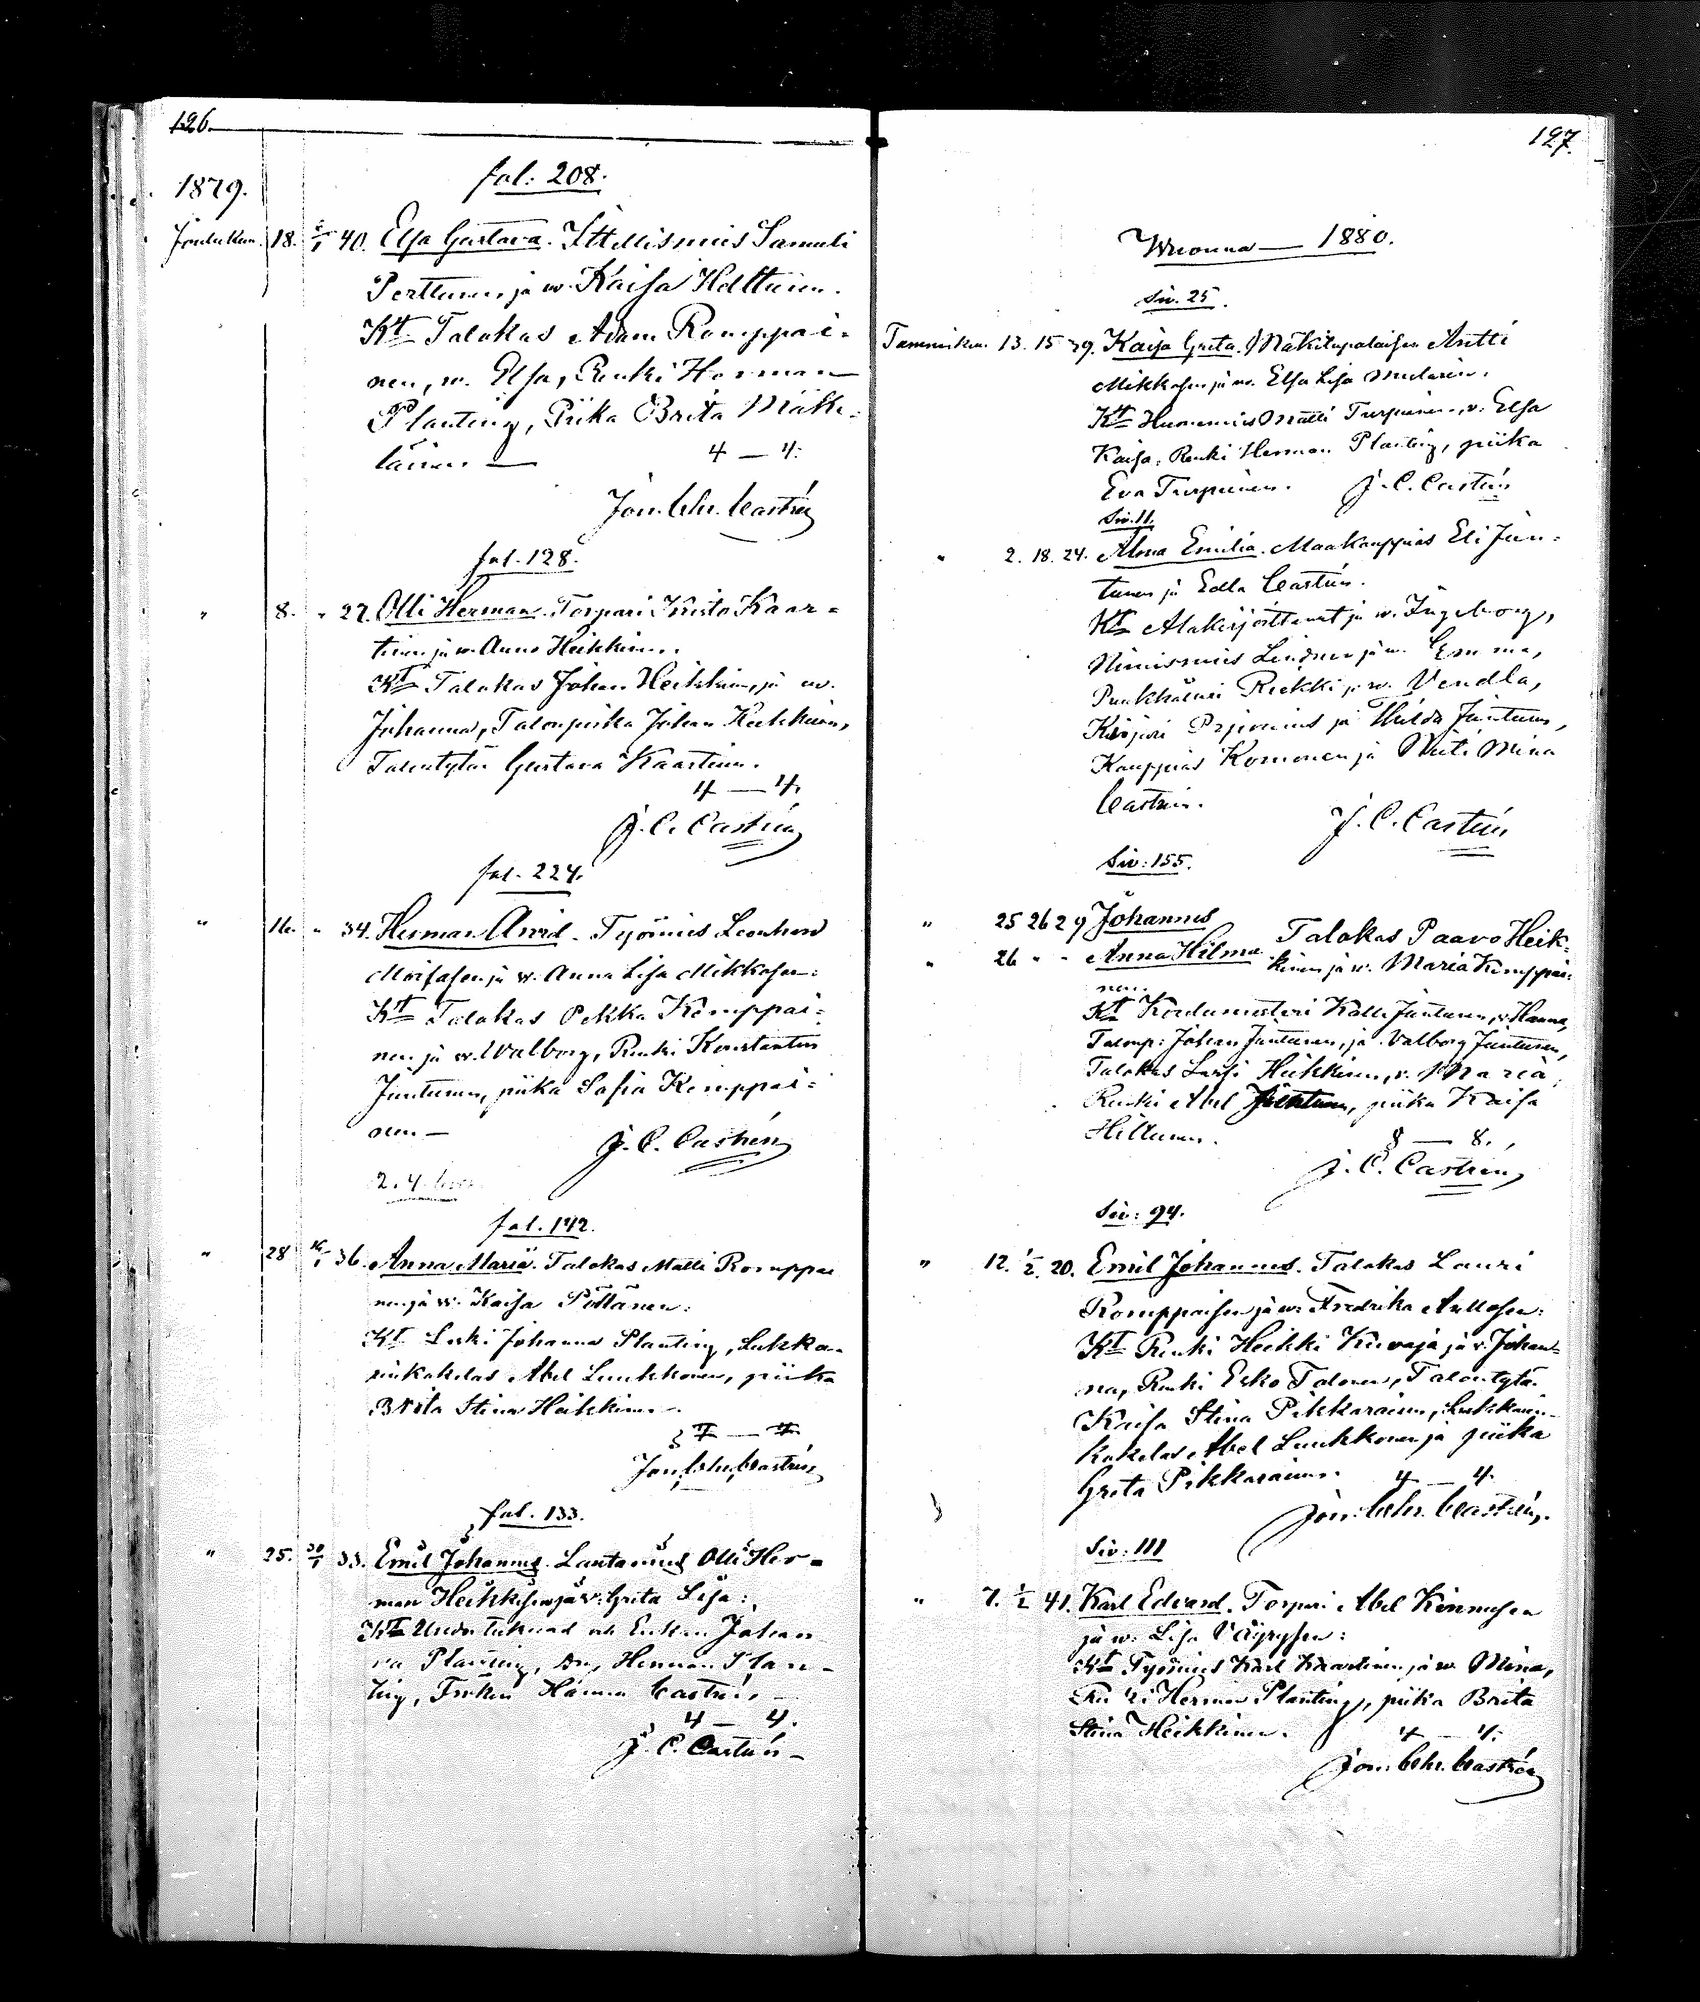 126.
1879.
fol: 208.
Jouluk. 18. 6/1 40. Elsa Gustava. Ittellismies Samuli
Perttunen ja w. Kaisa Heltturen.
Ktt Talokas Adam Romppai-
nen, w. Elsa, Renki Herman
Planting, Piika Brita Mäke-
läinen —
4 — 4.
Jon. Chr. Castrén
fol. 128.
" 8. " 27. Olli Herman. Torpari Kristo Kaar-
tinen ja w. Anna Heikkinen.
Ktt Talokas Johan Heikkinen, ja w.
Johanna, Talonpoika Johan Heikkinen,
Talontytär Gustava Kaartinen.
4 — 4.
J. C. Castrén
fol. 224.
" 16. " 34. Herman Arvid. Työmies Leonhard
Moisasen ja w. Anna Lisa Mikkosen:
Ktt Talokas Pekka Kemppai-
nen ja w. Walborg, Renki Konstantin
Juntunen, piika Sofia Kemppai-
nen —
J. C. Castrén
2. 4.
fol. 142.
" 28 16/1 36. Anna Maria. Talokas Matti Romppai
nen ja w. Kaisa Pöllänen:
Ktt Leski Johanna Planting, Lukka-
rinkokelas Abel Luukkonen, piika
Brita Stina Heikkinen.
Jon. Chr. Castrén
fol. 133.
" 25. 30/1 33. Emil Johannes. Lautamies Olli Her-
man Heikkisen ja w. Greta Lisa:
Ktt Undertecknad och Enkan Johan
na Planting, Herman Plan-
ting, Fröken Hanna Castrén —
4 — 4.
J. C. Castrén —
127.
Wuonna — 1880.
Siv. 25.
Tammikuu. 13. 15 39. Kaisa Greta. Mäkitupalaisen Antti
Mikkosen ja w. Elsa Lisa Mularin.
Ktt Huonemies Matti Turpeinen, w. Elsa
Kaisa, Renki Herman Planting, piika
Eva Turpeinen. J. C. Castrén
Siv. 11.
" 2. 18. 24. Alma Emilia. Maakauppias Eli Jun-
tunen ja Edla Castrén.
Ktt Alakirjoittanut ja w. Ingeborg,
Nimismies Lindner ja w. Emma,
ja w. Vendla,
Kirjuri ja Hilda Juntunen,
Kauppias Komonen ja Neiti Mina
Castrén.
J. C. Castrén
Siv: 155.
" 25 26 29 Johannes
" 26 " " Anna Hilma. Talokas Paavo Heik-
kinen ja w. Maria Kemppai-
nen.
Ktt Kalle Juntunen, w. Hanna,
Talonp: Johan Juntunen, ja Valborg Juntunen,
Talokas Lassi Heikkinen, w. Maria,
Renki Abel Juntunen, piika Kaisa
Hiltunen.
8 — 8.
J. C. Castrén
Siv: 94.
" 12. 1/2. 20. Emil Johannes. Talokas Lauri
Romppaisen ja w: Fredrika
Ktt Renki Heikki Kuivaja ja w. Johan-
na, Renki Esko Talonen, Talontytär
Kaisa Stina Pikkarainen, Lukkarin-
kokelas Abel Luukkonen ja piika
Greta Pikkarainen. 4 — 4.
Jon. Chr. Castrén.
Siv: 111
" 7. 1/2 41. Karl Edvard. Torpari Abel Kinnusen
ja w. Lisa Väyrysen:
Ktt Työmies Karl Kaartinen ja w. Mina,
Renki Herman Planting, piika Brita
Stina Heikkinen.
4 — 4.
Jon. Chr. Castrén